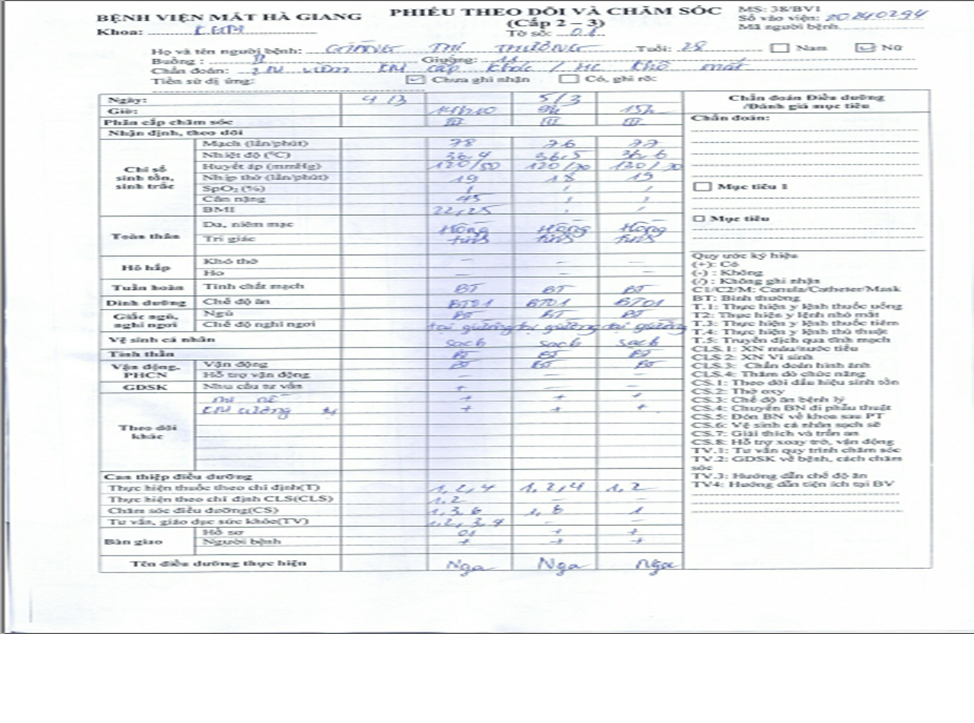 BỆNH VIỆN MẮT HÀ GIANG
PHIẾU THEO DÕI VÀ CHĂM SÓC
(Cấp 2 – 3)
MS: 38/BV1
Số vào viện: 20240294
Mã người bệnh
Khoa:
Tờ số: 01
Họ và tên người bệnh: GIÀNG THỊ THƯƠNG Tuổi: 28 Nam Nữ
Buồng: II Giường: 11
Chẩn đoán: 2M viêm KM cấp khác / HC khô mắt
Tiền sử dị ứng: Chưa ghi nhận Có, ghi rõ:
Ngày: 4/3 5/3
Chẩn đoán Điều dưỡng /Đánh giá mục tiêu
Giờ: 14h10 9h 15h
Phân cấp chăm sóc III III III
Chẩn đoán:
Nhận định, theo dõi
Chỉ số sinh tồn, sinh trắc
Mạch (lần/phút) 78 76 77
Nhiệt độ (ºC) 36,4 36,5 36,6
Huyết áp (mmHg) 120/80 120/70 120/70
Nhịp thở (lần/phút) 19 18 19
SpO2 (%) / / /
Cân nặng 45 / /
BMI 22,25 / /
Mục tiêu 1
Mục tiêu
Toàn thân
Da, niêm mạc Hồng Hồng Hồng
Tri giác tỉnh tỉnh tỉnh
Hô hấp
Khó thở – – –
Ho – – –
Tuần hoàn Tính chất mạch BT BT BT
Dinh dưỡng Chế độ ăn BT01 BT01 BT01
Giấc ngủ, nghỉ ngơi
Ngủ BT BT BT
Chế độ nghỉ ngơi tại giường tại giường tại giường
Vệ sinh cá nhân sạch sạch sạch
Tinh thần BT BT BT
Vận động- PHCN
Vận động BT BT BT
Hỗ trợ vận động – – –
GDSK Nhu cầu tư vấn + – –
Theo dõi khác
mi nề + + +
KM cương tụ + + +
Can thiệp điều dưỡng
Thực hiện thuốc theo chỉ định(T) 1,2,4 1,2,4 1,2
Thực hiện theo chỉ định CLS(CLS) 1,2 – –
Chăm sóc điều dưỡng(CS) 1,3,6 1,6 1
Tư vấn, giáo dục sức khỏe(TV) 1,2,3,4 – –
Bàn giao
Hồ sơ 01 + +
Người bệnh + + +
Tên điều dưỡng thực hiện Nga Nga Nga
Quy ước ký hiệu
(+): Có
(-) : Không
(/) : Không ghi nhận
C1/C2/M: Canula/Catheter/Mask
BT: Bình thường
T.1: Thực hiện y lệnh thuốc uống
T2: Thực hiện y lệnh nhỏ mắt
T.3: Thực hiện y lệnh thuốc tiêm
T.4: Thực hiện y lệnh thủ thuật
T.5: Truyền dịch qua tĩnh mạch
CLS.1: XN máu/nước tiểu
CLS 2: XN Vi sinh
CLS.3: Chẩn đoán hình ảnh
CLS.4: Thăm dò chức năng
CS.1: Theo dõi dấu hiệu sinh tồn
CS.2: Thở oxy
CS.3: Chế độ ăn bệnh lý
CS.4: Chuyển BN đi phẫu thuật
CS.5: Đón BN về khoa sau PT
CS.6: Vệ sinh cá nhân sạch sẽ
CS.7: Giải thích và trấn an
CS.8: Hỗ trợ xoay trở, vận động
TV.1: Tư vấn quy trình chăm sóc
TV.2: GDSK về bệnh, cách chăm sóc
TV.3: Hướng dẫn chế độ ăn
TV4: Hướng dẫn tiện ích tại BV